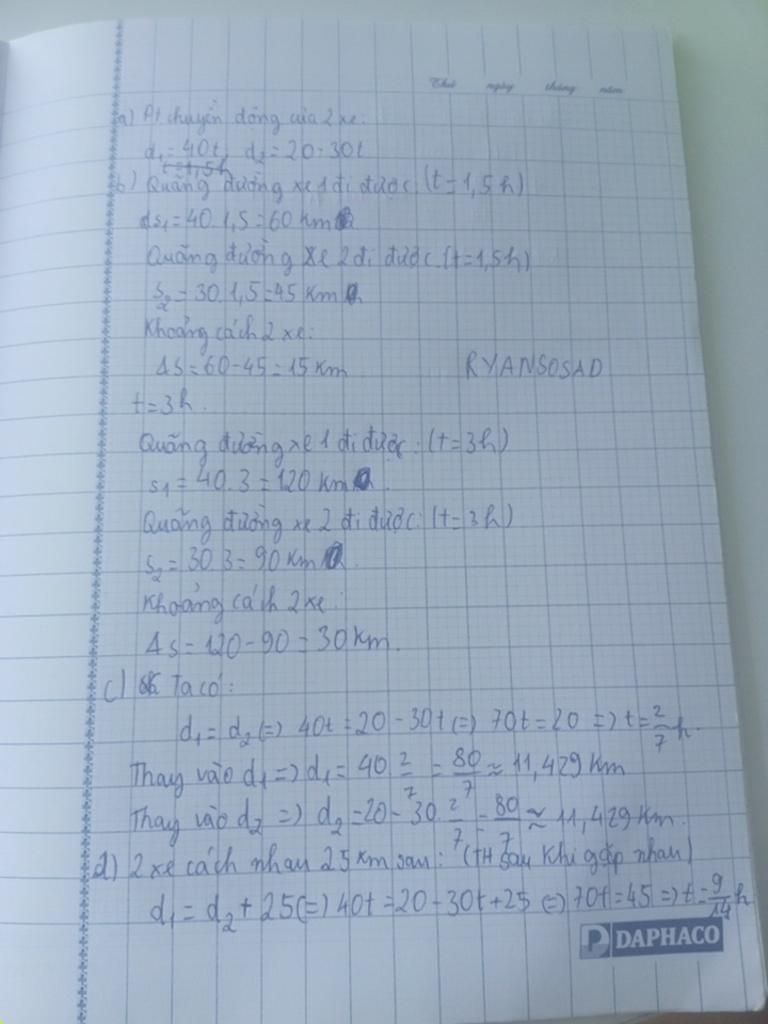 Thứ ngày tháng năm
a) Pt chuyển động của 2 xe:
d₁ = 40t, d₂ = 20 - 30t
t = 1,5h
b) Quãng đường xe 1 đi được: (t = 1,5h)
ds₁ = 40.1,5 = 60 km
Quãng đường xe 2 đi được: (t = 1,5h)
s₂ = 30.1,5 = 45 km
Khoảng cách 2 xe:
Δs = 60 - 45 = 15 km
RYANSOSAD
t = 3h.
Quãng đường xe 1 đi được: (t = 3h)
s₁ = 40.3 = 120 km
Quãng đường xe 2 đi được: (t = 3h)
s₂ = 30.3 = 90 km
Khoảng cách 2 xe:
Δs = 120 - 90 = 30 km.
c) Ta có:
d₁ = d₂ (=) 40t = 20 - 30t (=) 70t = 20 => t = 2/7 h.
Thay vào d₁ => d₁ = 40 2/7 = 80/7 ≈ 11,429 km
Thay vào d₂ => d₂ = 20 - 30. 2/7 = 80/7 ≈ 11,429 km.
d) 2 xe cách nhau 25 km sau: (TH sau khi gặp nhau)
d₁ = d₂ + 25 (=) 40t = 20 - 30t + 25 (=) 70t = 45 => t = 9/14 h
DAPHACO